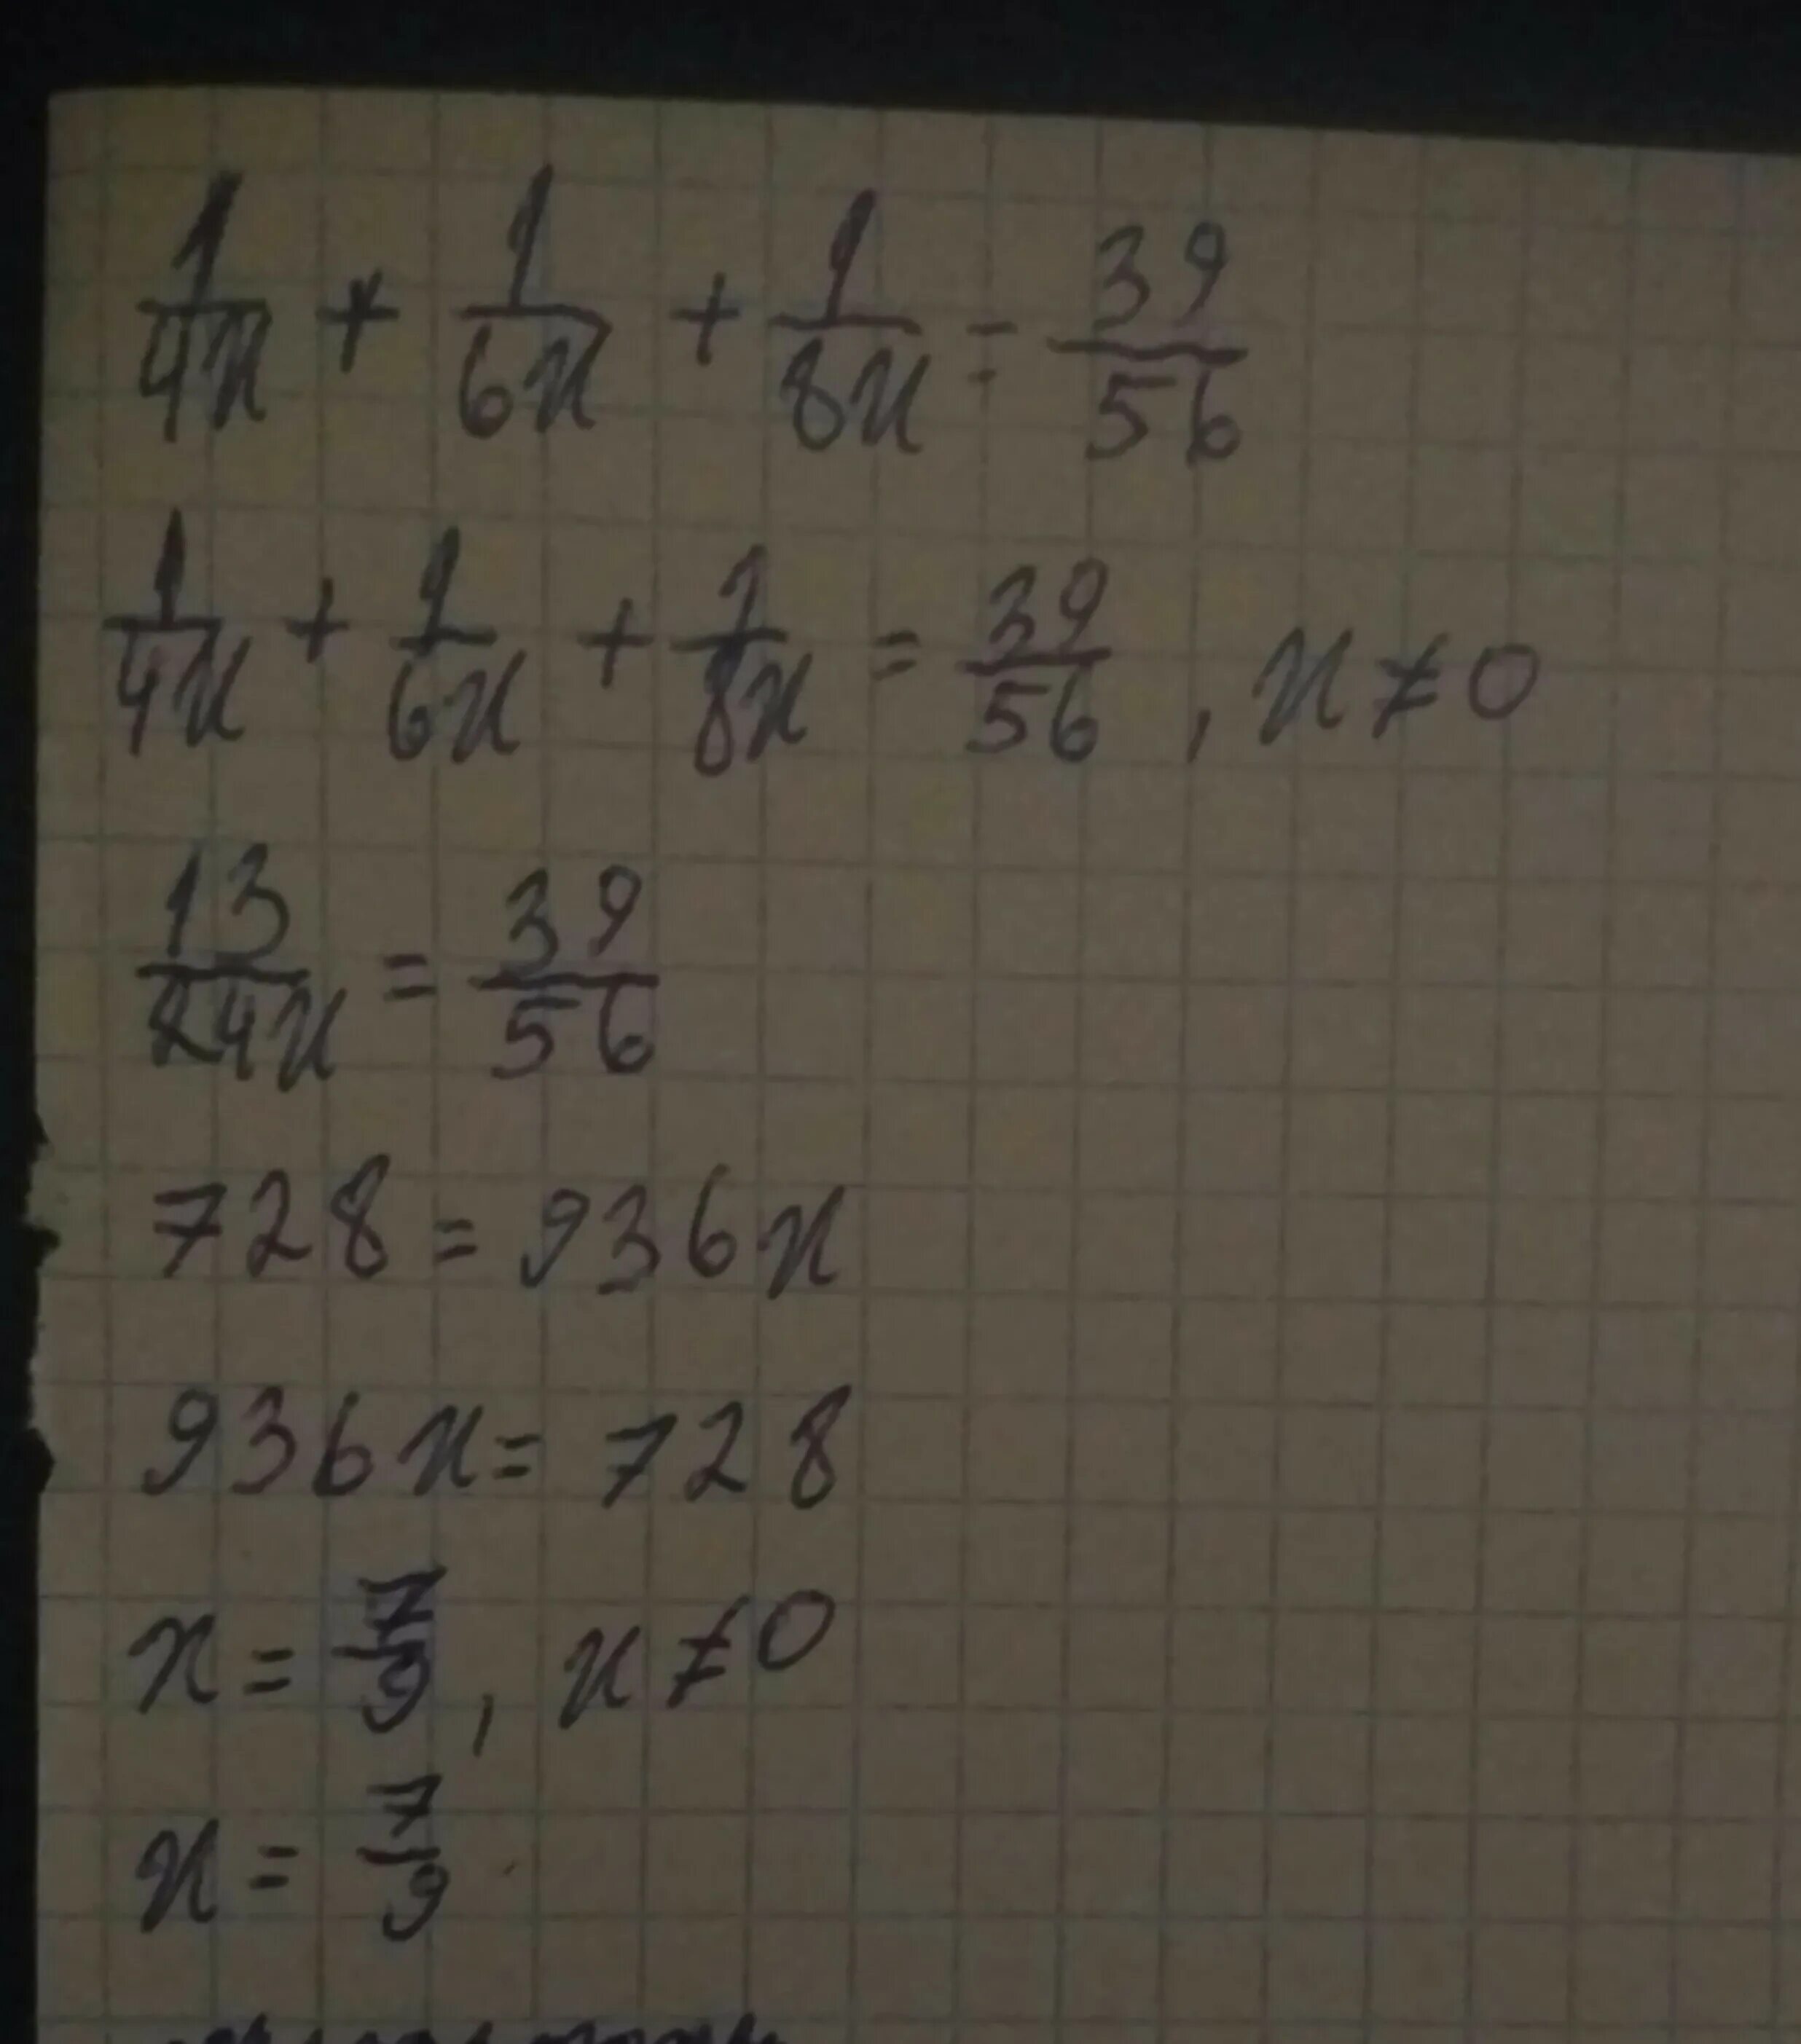 1/4x + 1/6x + 1/8x = 39/56
1/4x + 1/6x + 1/8x = 39/56 , x ≠ 0
13/24x = 39/56
728 = 936x
936x = 728
x = 7/9 , x ≠ 0
x = 7/9